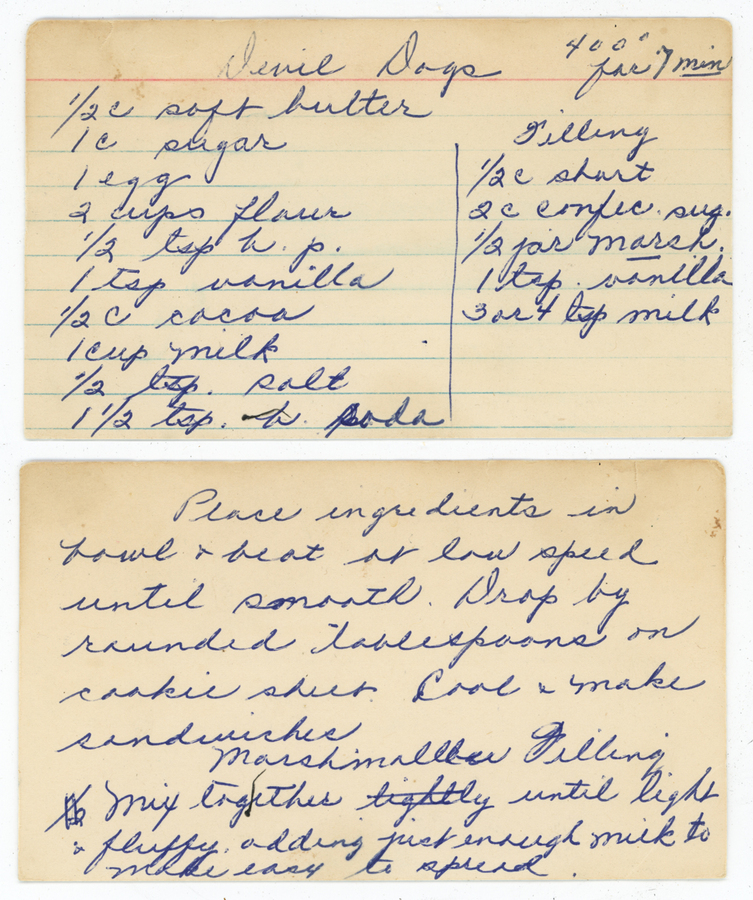 Devil Dogs
400° for 7 min
1/2 c soft butter
1 c sugar
1 egg
2 cups flour
1/2 tsp b. p.
1 tsp vanilla
1/2 c cocoa
1 cup milk
1/2 tsp. salt
1 1/2 tsp. b. soda
Filling
1/2 c short
2 c confec. sug.
1/2 jar marsh.
1 tsp. vanilla
3 or 4 tsp milk
Place ingredients in
bowl & beat at low speed
until smooth. Drop by
rounded tablespoons on
cookie sheet. Cool & make
sandwiches
Marshmallow Filling
Mix together tightly until light
& fluffy. adding just enough milk to
make easy to spread.